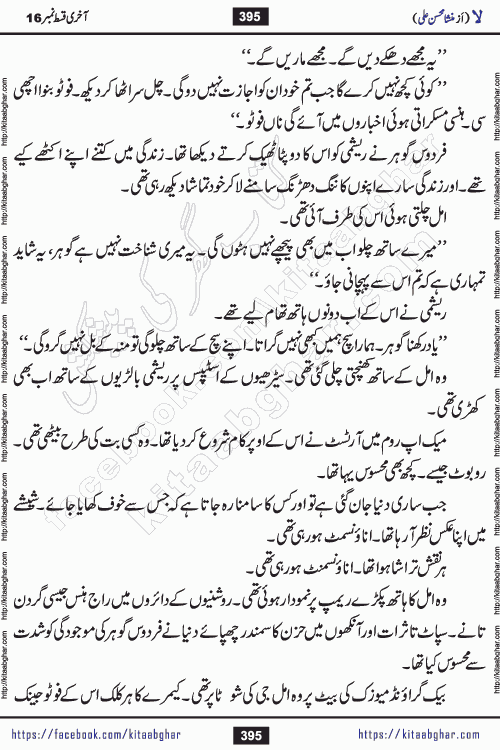 لا (از منشا محسن علی) 395 آخری قسط نمبر 16
’’یہ مجھے دھکے دیں گے۔ مجھے ماریں گے۔‘‘
’’کوئی کچھ نہیں کرے گا جب تم خود ان کو اجازت نہیں دو گی۔ چل سر اٹھا کر دیکھ۔ فوٹو بنوا اچھی
سی۔ ہنسی مسکراتی ہوئی اخباروں میں آئے گی ناں فوٹو۔‘‘
فردوس گوہر نے ریشمی کو اس کا دوپٹا ٹھیک کرتے دیکھا تھا۔ زندگی میں کتنے اپنے اکٹھے کیے
تھے۔ اور زندگی سارے اپنوں کا ننگ دھڑنگ سامنے لا کر خود تماشا دیکھ رہی تھی۔
امل چلتی ہوئی اس کی طرف آئی تھی۔
’’میرے ساتھ چلو اب میں بھی پیچھے نہیں ہٹوں گی۔ یہ میری شناخت نہیں ہے گوہر، یہ شاید
تمہاری ہے کہ تم اس سے پہچانی جاؤ۔‘‘
ریشمی نے اس کے اب دونوں ہاتھ تھام لیے تھے۔
’’یاد رکھنا گوہر۔ ہمارا سچ ہمیں کبھی نہیں گراتا۔ اپنے سچ کے ساتھ چلو گی تو منہ کے بل نہیں گرو گی۔‘‘
وہ امل کے ساتھ کھنچتی چلی گئی تھی۔ سیڑھیوں کے اسٹیپس پر ریشمی بالڑیوں کے ساتھ اب بھی
کھڑی تھی۔
میک اپ روم میں آرٹسٹ نے اس کے اوپر کام شروع کر دیا تھا۔ وہ کسی بت کی طرح بیٹھی تھی۔
روبوٹ جیسے۔ کچھ بھی محسوس یہا تھا۔
جب ساری دنیا جان گئی ہے تو اور کس کا سامنا رہ جاتا ہے کہ جس سے خوف کھایا جائے۔ شیشے
میں اپنا عکس نظر آ رہا تھا۔ اناؤنسمنٹ ہو رہی تھی۔
ہر نقش تراشا ہوا تھا۔ اناؤنسمنٹ ہو رہی تھی۔
وہ امل کا ہاتھ پکڑے ریمپ پر نمودار ہوئی تھی۔ روشنیوں کے دائروں میں راج ہنس جیسی گردن
تانے۔ سپاٹ تاثرات اور آنکھوں میں حزن کا سمندر چھپائے دنیا نے فردوس گوہر کی موجودگی کو شدت
سے محسوس کیا تھا۔
بیک گراؤنڈ میوزک کی بیٹ پر وہ امل جی کی شو ٹاپر تھی۔ کیمرے کا ہر کلک اس کے فوٹو جینک
https://facebook.com/kitaabghar 395 https://kitaabghar.com
http://kitaabghar.com
کتاب گھر کی پیشکش
facebook.com/kitaabghar
kitaabghar.com